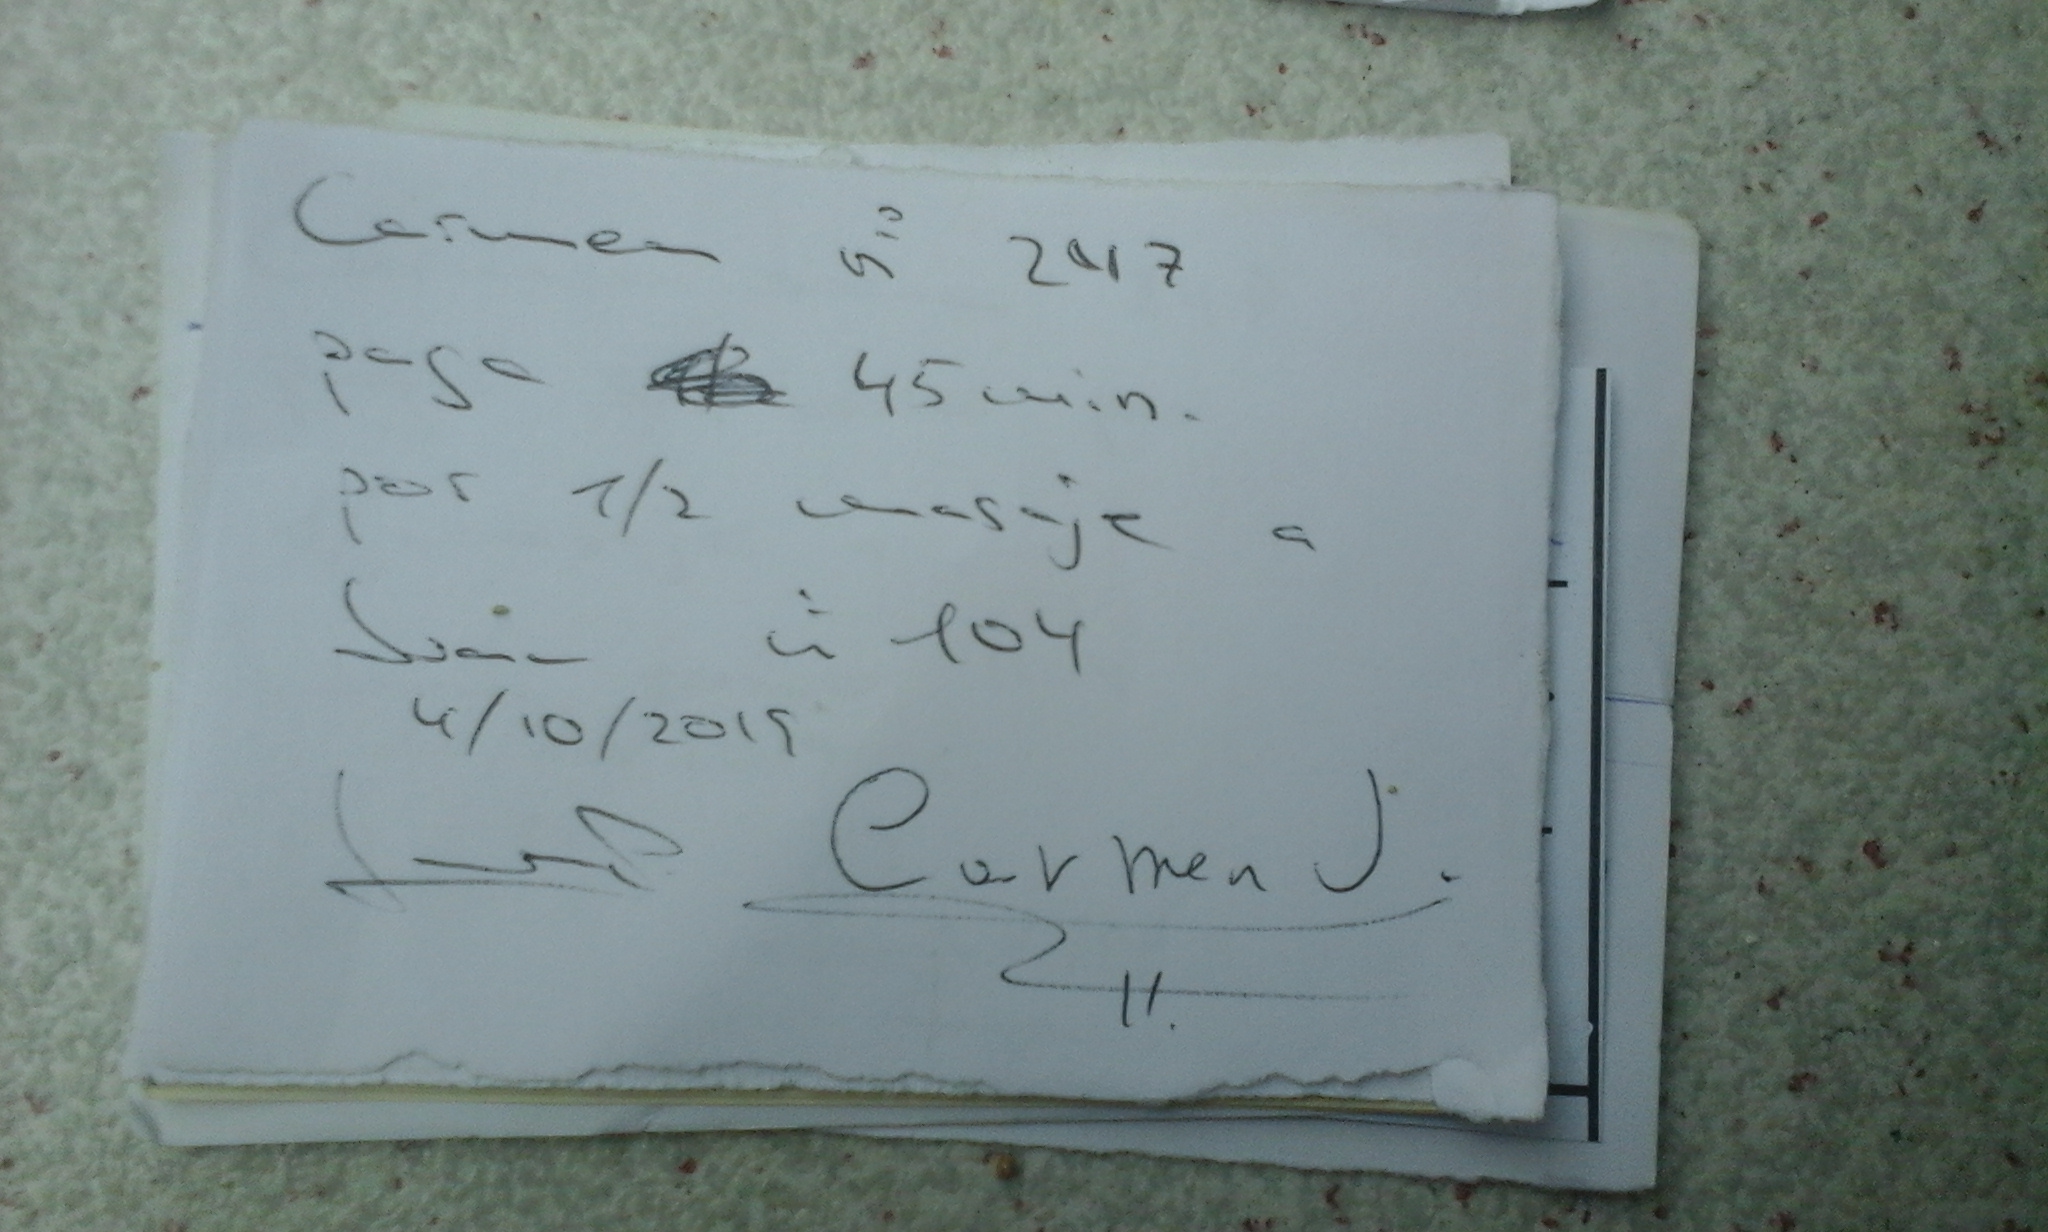 Carmen nº 247
paga 45 min.
por 1/2 masaje a
nº 104
4/10/2019
Carmen J.